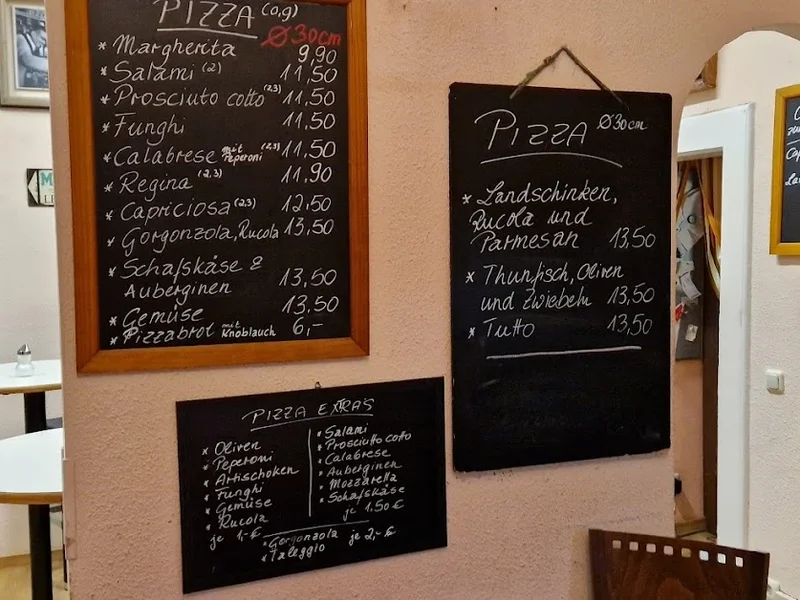 PIZZA (a,g)
Ø 30cm
* Margherita 9,90
* Salami (2) 11,50
* Prosciuto cotto (2,3) 11,50
* Funghi 11,50
* Calabrese mit Peperoni (2,3) 11,50
* Regina (2,3) 11,90
* Capriciosa (2,3) 12,50
* Gorgonzola, Rucola 13,50
* Schafskäse &
Auberginen 13,50
* Gemüse 13,50
* Pizzabrot mit Knoblauch 6,-
PIZZA Ø30cm
* Landschinken,
Rucola und
Parmesan 13,50
* Thunfisch, Oliven
und Zwiebeln 13,50
* Tutto 13,50
PIZZA EXTRAS
* Oliven
* Peperoni
* Artischoken
* Funghi
* Gemüse
* Rucola
je 1,-€
* Salami
* Prosciutto cotto
* Calabrese
* Auberginen
* Mozzarella
* Schafskäse
je 1.50 €
* Gorgonzola je 2,-€
* Taleggio